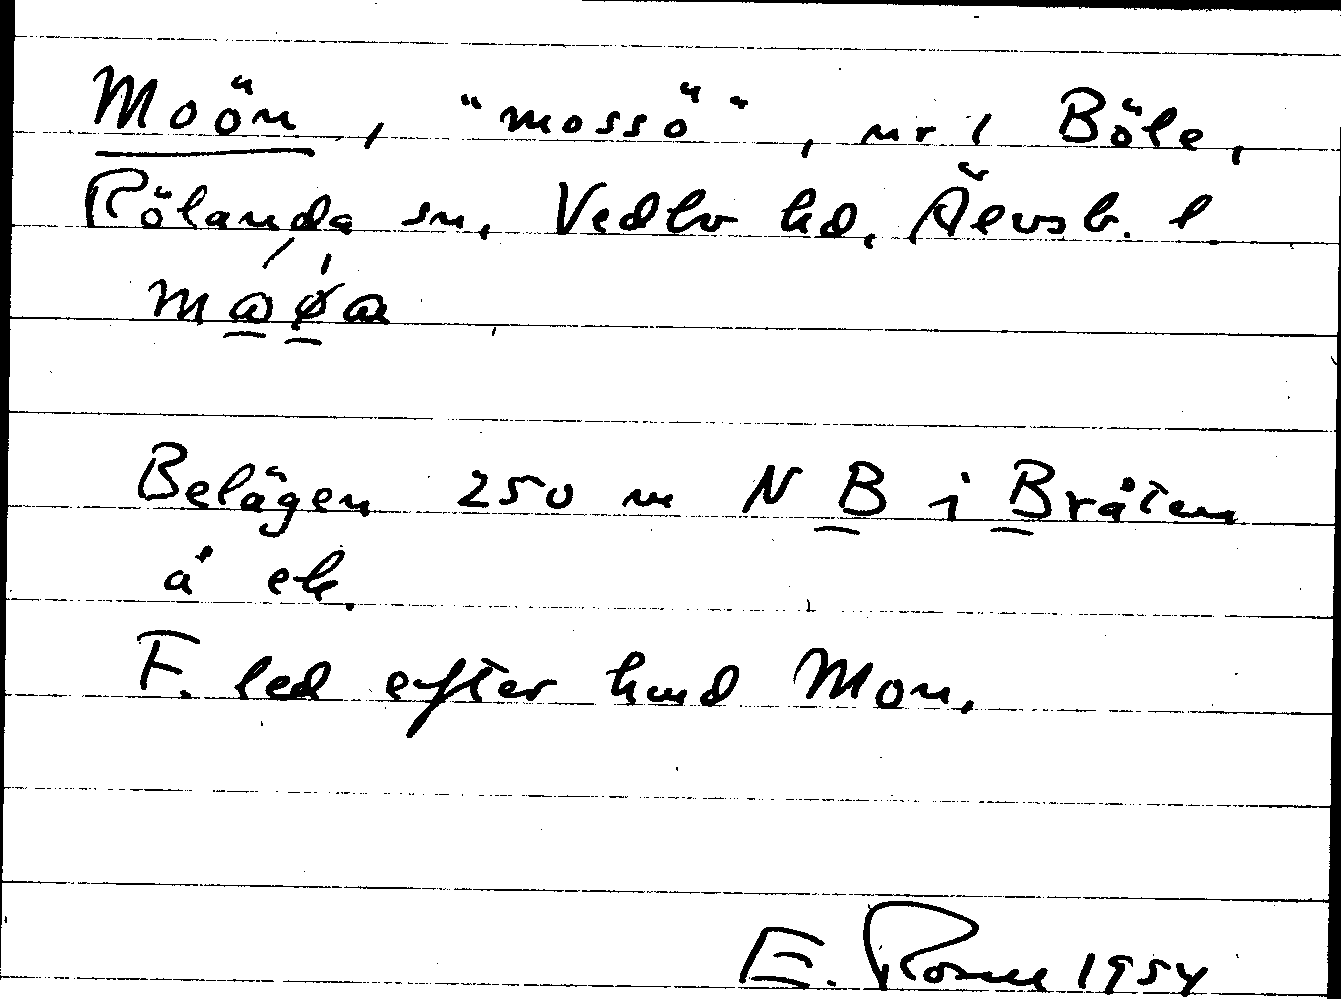 Moön, "mossö", nr 1 Böle,
Rölanda sn, Vedbo hd, Älvsb. l
Belägen 250 m N B i Bråten
å ek.
F. led efter hmd Mon.
E. 1954